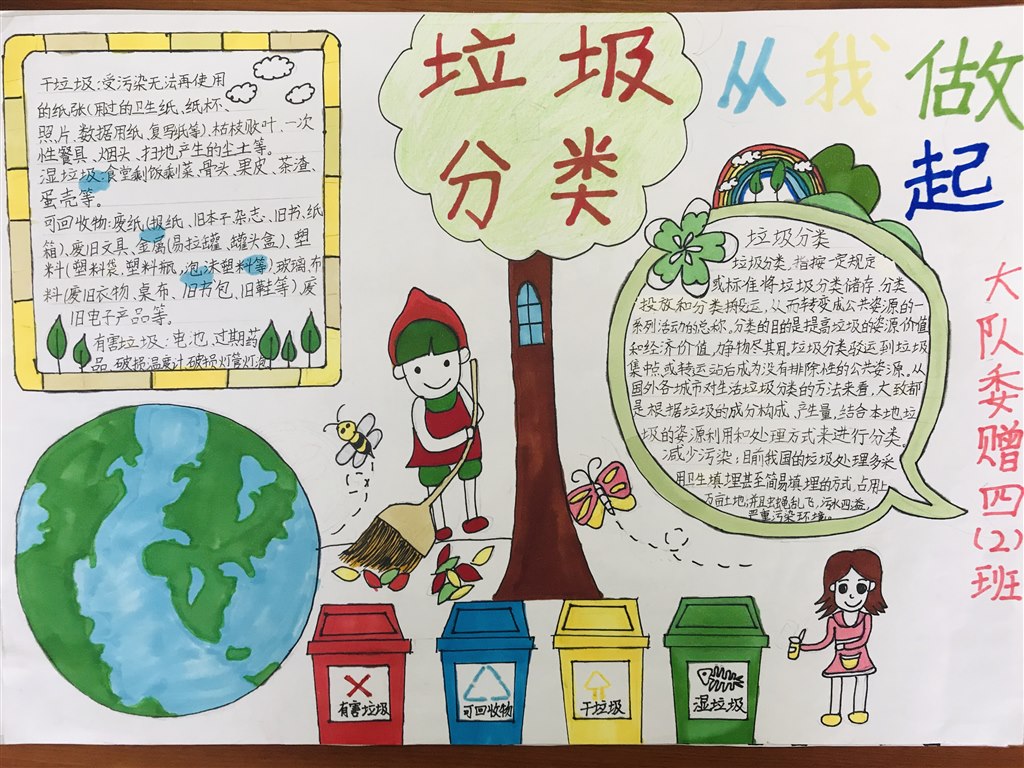 垃圾
分类
从我做
起
干垃圾:受污染无法再使用
的纸张(用过的卫生纸、纸杯、
照片、数据用纸、复写纸等)、枯枝败叶、一次
性餐具、烟头、扫地产生的尘土等。
湿垃圾:食堂剩饭剩菜、骨头、果皮、茶渣、
蛋壳等。
可回收物:废纸(报纸、旧本子杂志、旧书、纸
箱)、废旧文具、金属(易拉罐、罐头盒)、塑
料(塑料袋、塑料瓶、泡沫塑料等)、玻璃、布
料(废旧衣物、桌布、旧书包、旧鞋等)、废
旧电子产品等.
有害垃圾:电池,过期药
品、破损温度计、破损灯管灯泡
垃圾分类
垃圾分类,指按一定规定
或标准将垃圾分类储存、分类
投放和分类搬运,从而转变成公共资源的一
系列活动的总称。分类的目的是提高垃圾的资源价值
和经济价值,力争物尽其用。垃圾分类驳运到垃圾
集中点或转运站后成为没有排除性的公共资源。从
国外各城市对生活垃圾分类的方法来看,大致都
是根据垃圾的成分构成、产生量,结合本地垃
圾的资源利用和处理方式来进行分类。
减少污染:目前我国的垃圾处理多采
用卫生填埋甚至简易填埋的方式,占用上
万亩土地;并且虫蝇乱飞,污水四溢,
严重污染环境。
大队委赠四(2)班
有害垃圾
可回收物
干垃圾
湿垃圾